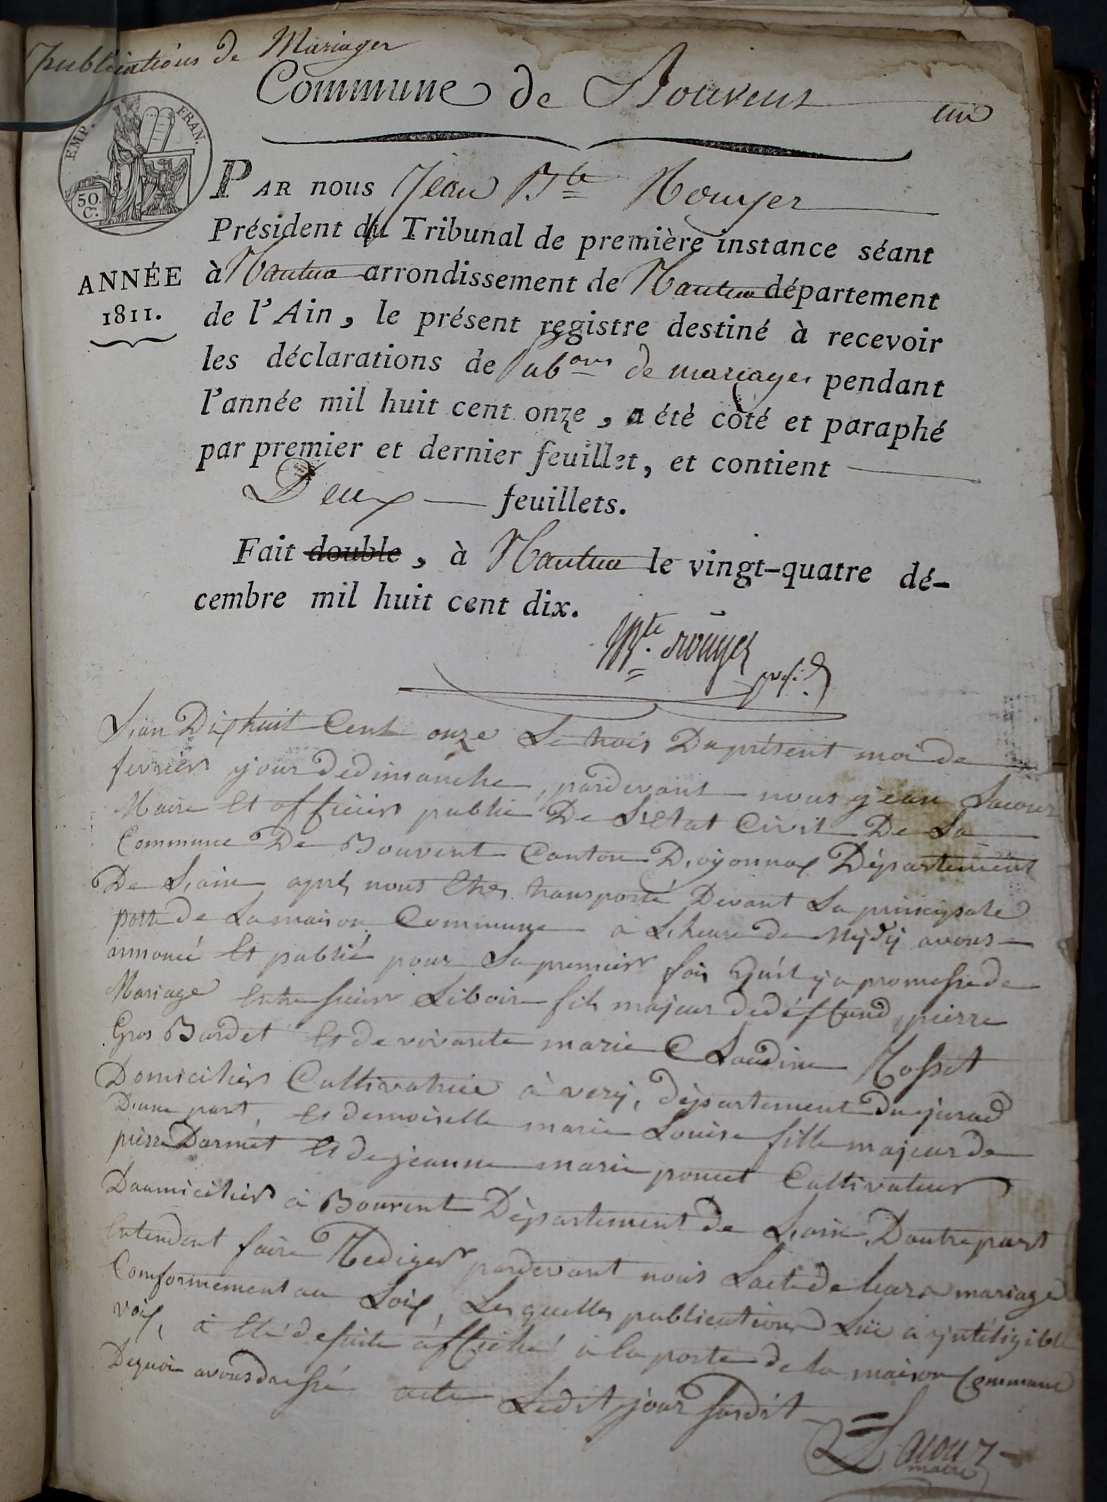 Publications de Mariages
Commune de Bouvent
un
EMP. FRAN.
50 C.
ANNÉE
1811.
PAR nous Jean Bte Rouyer
Président du Tribunal de première instance séant
à Nantua arrondissement de Nantua département
de l'Ain, le présent registre destiné à recevoir
les déclarations de pubons de mariages pendant
l'année mil huit cent onze, a été coté et paraphé
par premier et dernier feuillet, et contient
Deux feuillets.
Fait double, à Nantua le vingt-quatre dé-
cembre mil huit cent dix.
JBte Rouyer
presid
L'an Dix huit Cent onze Le trois Du présent moi de
fevrier jour dedimanche, pardevant nous jean Lacour
Maire Et officier public De L'Etat Civil De La
Commune De Bouvent Canton D'oyonnax Département
De L'ain, après nous Etre transporté Devant La principale
porte de La maison Commune à L'heure de Mydy avons
annoncé Et publié pour La premier fois qu'il y a promesse de
Mariage Entre sieur Liboire fils majeur de déffund pierre
Gros Burdet Et de vivante marie Claudine Rosset
Domicilier Cultivatrice à very, département du jurad
D'une part, Et demoiselle marie Louise fille majeur de
pierre Darmet Et de jeanne marie poncet Cultivateur
Daumicilier à Bouvent Département de L'ain, D'autre part
Entendent faire Rediger pardevant nous L'acte de leur mariage
Conformement au Loix, Lesquelles publication Luë à yntéligible
voix, à Eté de suite affiché à la porte de la maison Commune
De quoi avons dressé acte Ledit jour surdit
Lacour
maire